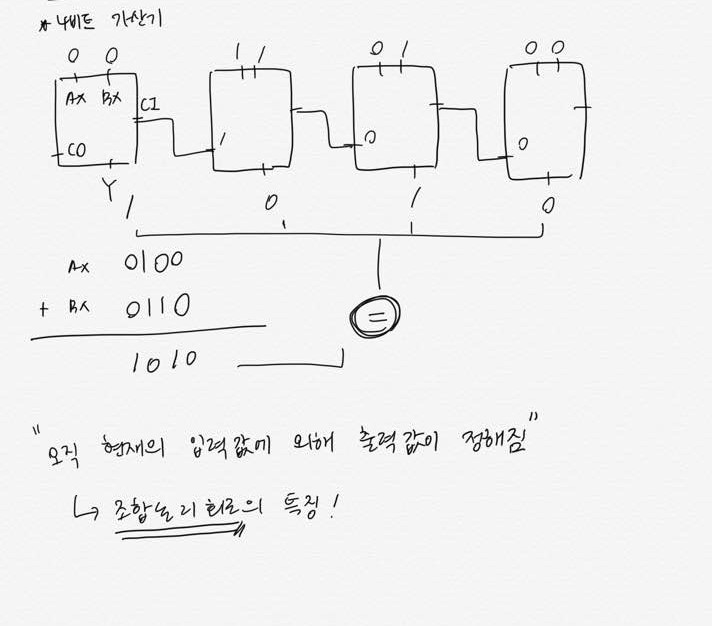 * 4비트 가산기
0 0 1 1 0 1 0 0
AX BX CI
CO 1 0 0
Y
1 0 1 0
AX 0100
+ BX 0110
=
1010
"오직 현재의 입력값에 의해 출력값이 정해짐"
↳ 조합논리회로의 특징!